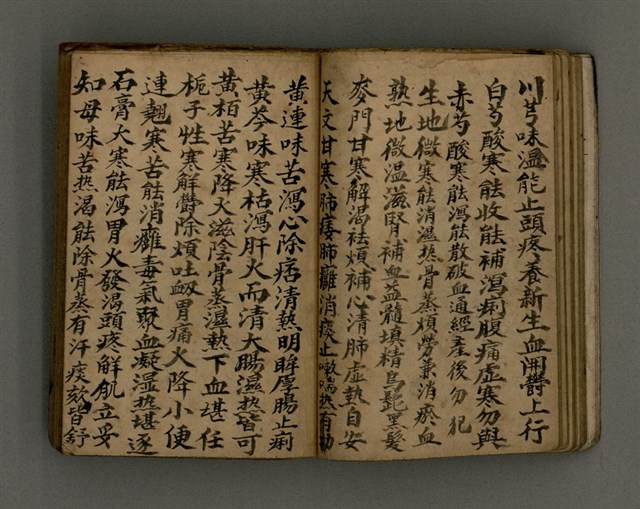 川芎味溫能止頭疼養新生血開欝上行
白芍酸寒能收能補瀉痢腹痛虛寒勿與
赤芍酸寒能瀉能散破血通經產後勿犯
生地微寒能消溫热骨蒸煩勞兼消瘀血
熟地微溫滋腎補血益髓填精烏髭黑髮
麥門甘寒解渴祛煩補心清肺虛熱自安
天文甘寒肺痿肺癰消痰止嗽喘热有功
黃連味苦瀉心除痞清熱明眸厚腸止痢
黃芩味寒枯瀉肝火而清大腸溫热皆可
黃栢苦寒降火滋陰骨蒸溫热下血堪任
梔子性寒解欝除煩吐衂胃痛火降小便
連翹寒苦能消癰毒氣聚血凝湿热堪逐
石膏大寒能瀉胃火發渴頭疼解肌立妥
知母味苦热渴能除骨蒸有汗痰欬皆舒